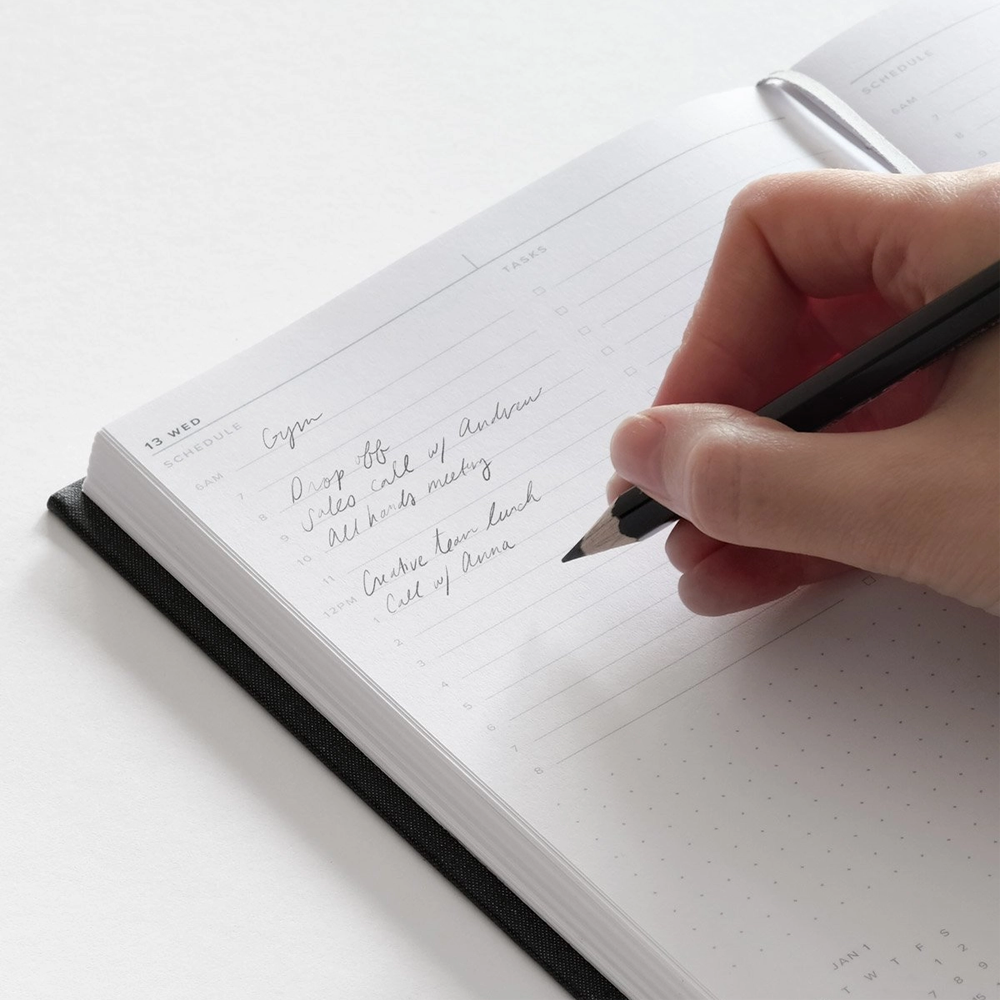 13 WED
SCHEDULE
TASKS
6AM Gym
7
8 Drop off
9 Sales call w/ Andrew
10 All hands meeting
11
12PM Creative team lunch
1 Call w/ Anna
2
3
4
5
6
7
8
JAN 1
T W T F S
1 2
7 8 9
SCHEDULE
6AM
7
8
9